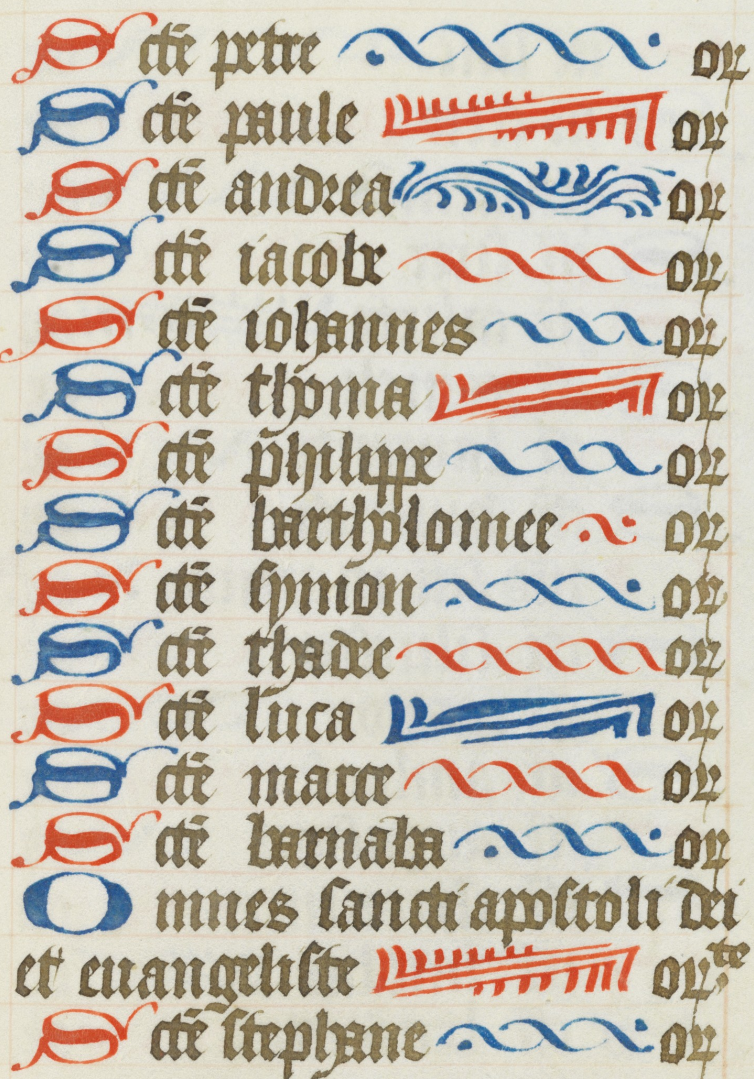 Sctē petre or
Sctē paule or
Sctē andrea or
Sctē iacobe or
Sctē iohannes or
Sctē thoma or
Sctē philippe or
Sctē bartholomee or
Sctē symon or
Sctē thadee or
Sctē luca or
Sctē marce or
Sctē barnaba or
Omnes sancti apostoli dei
et euangeliste or te
Sctē stephane or